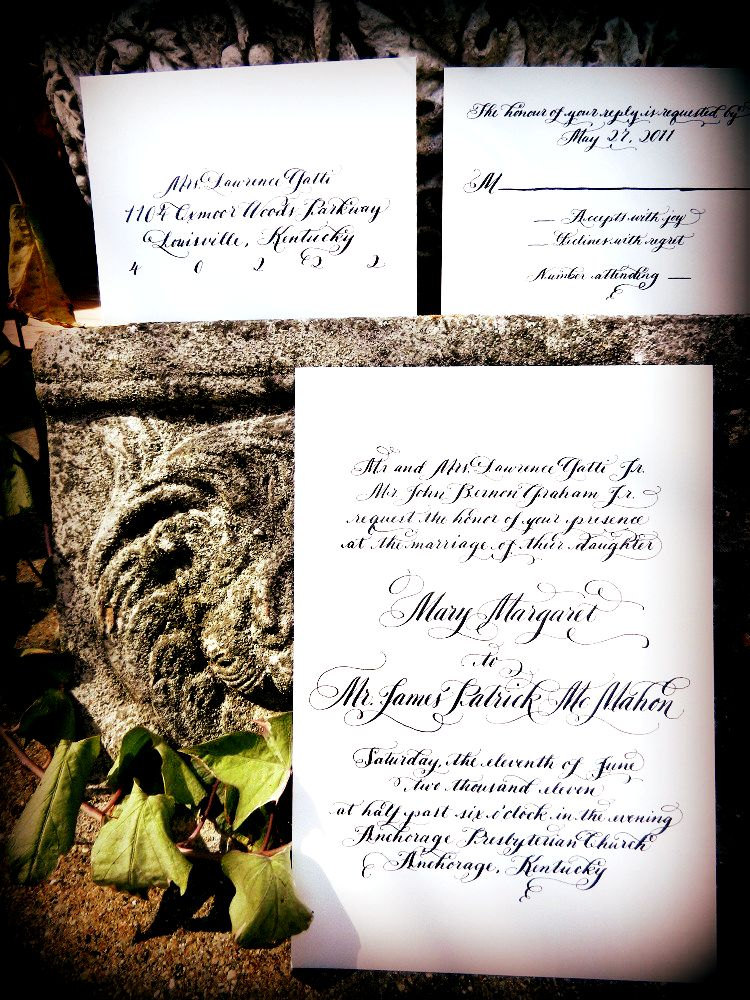 Mrs. Lawrence Gatti
1104 Oxmoor Woods Parkway
Louisville, Kentucky
4 0 2 2 2
The honour of your reply is requested by
May 27, 2011
M
Accepts with joy
Declines with regret
Number attending
Mr and Mrs. Lawrence Gatti Jr.
Mr John Bernon Graham Jr.
request the honor of your presence
at the marriage of their daughter
Mary Margaret
to
Mr. James Patrick Mc Mahon
Saturday, the eleventh of June
two thousand eleven
at half past six o'clock in the evening
Anchorage Presbyterian Church
Anchorage, Kentucky